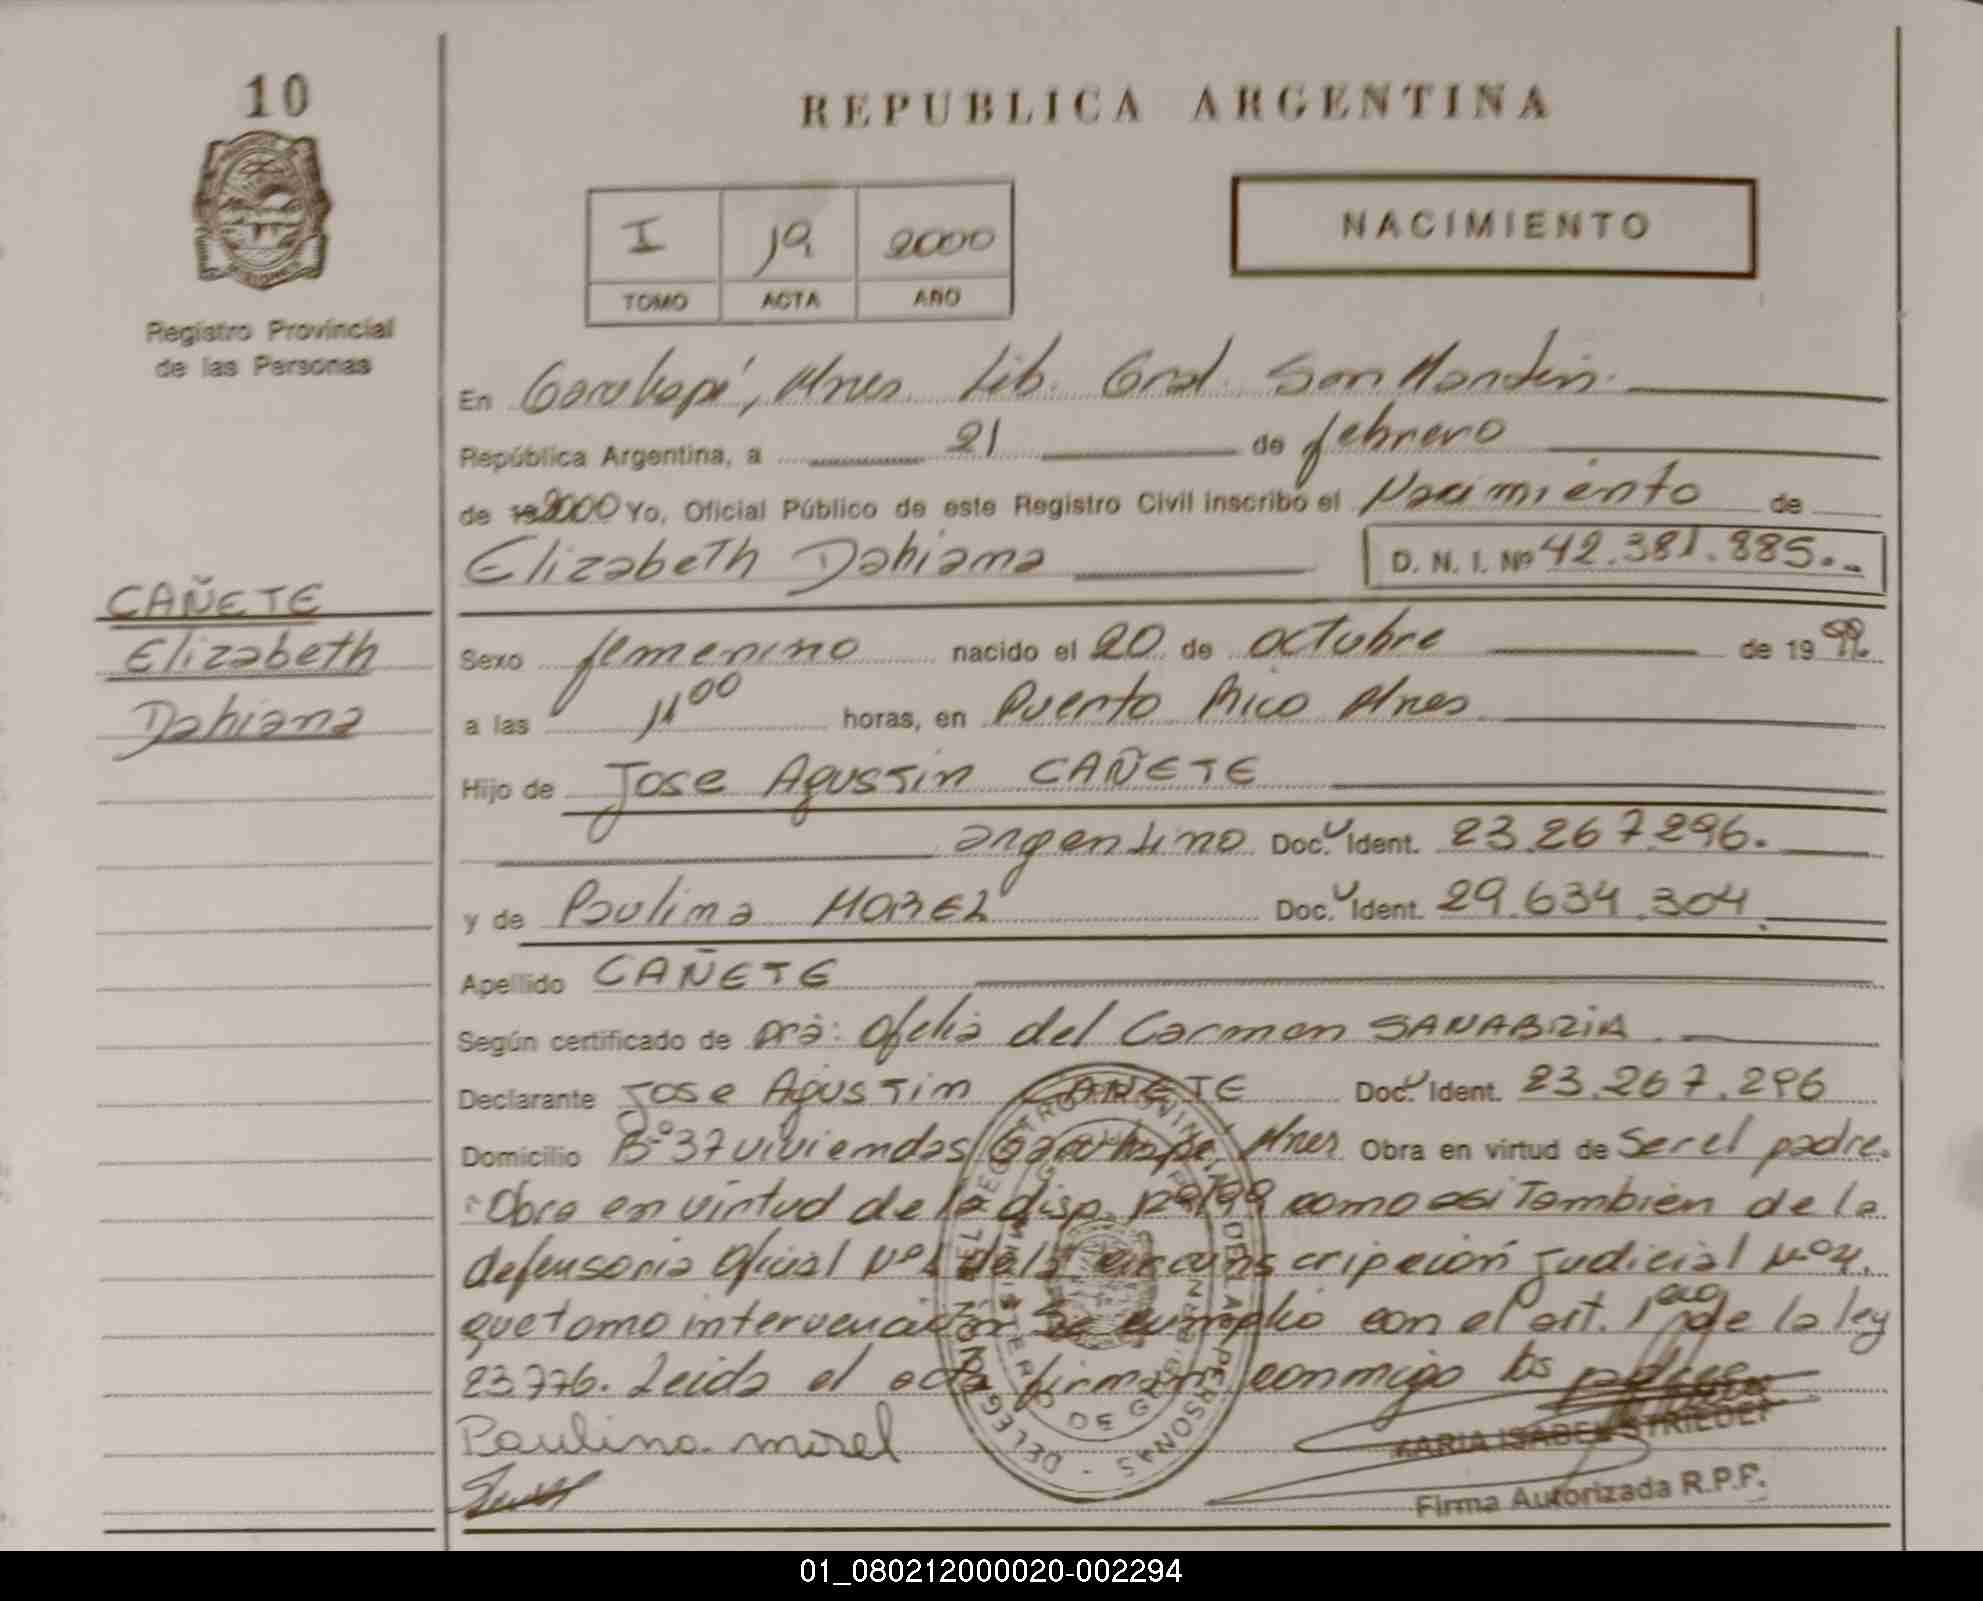 10
REPUBLICA ARGENTINA
I 19 2000
TOMO ACTA AÑO
NACIMIENTO
Registro Provincial
de las Personas
En Garuhapé, Mnes. Lib. Gral. San Martin.
República Argentina, a 21 de febrero
de 19 2000 Yo, Oficial Público de este Registro Civil inscribo el Nacimiento de
Elizabeth Dahiana D. N. I. Nº 42.381.885.
CAÑETE
Elizabeth
Dahiana
Sexo femenino nacido el 20 de octubre de 19 99.
a las 11 00 horas, en Puerto Rico Mnes
Hijo de Jose Agustin CAÑETE
argentino Doc. Ident. 23.267.296.
y de Paulina MOREL Doc. Ident. 29.634.304
Apellido CAÑETE
Según certificado de Dra: Ofelia del Carmen SANABRIA
Declarante Jose Agustin CAÑETE Doc. Ident. 23.267.296
Domicilio Bº 37 viviendas Garuhapé Mnes Obra en virtud de Ser el padre.
Obra en virtud de la disp. como asi Tambien de la
defensoria Oficial Nº 1 de la circunscripción Judicial Nº 4.
que tomo intervención Se cumplió con el art. 1º de la ley
23.776. Leida el acta firman conmigo los padres
Paulina morel
MARIA ISABEL STRIEDER
Firma Autorizada R.P.P.
DELEGACION DEL REGISTRO PROVINCIAL DE LAS PERSONAS
MINISTERIO DE GOBIERNO
01_080212000020-002294